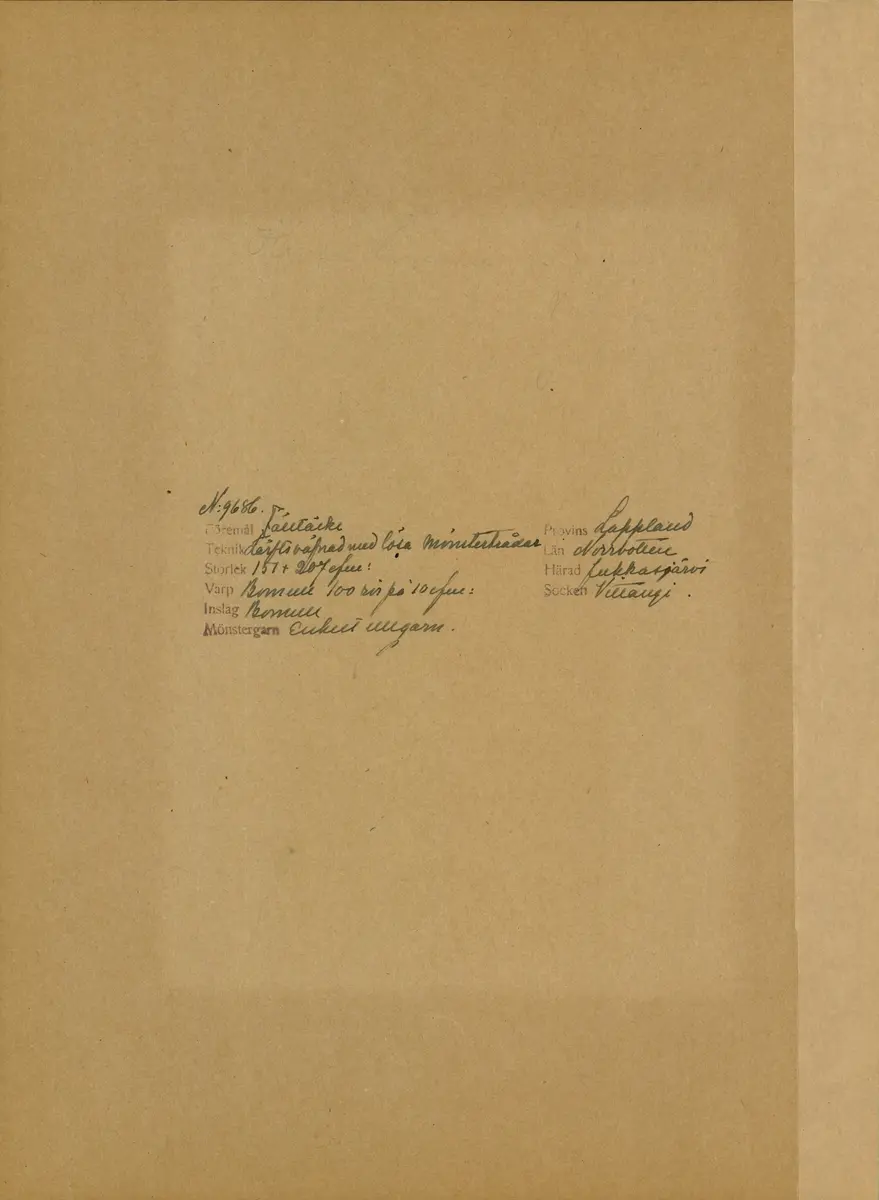 N:9686.
Föremål Täcke
Teknik Täftsväfnad med lösa mönstertrådar
Storlek 151 + 207 cfm:
Varp Bomull 100 rör på 10 cfm:
Inslag Bomull
Mönstergarn Enkelt ullgarn.
Provins Lappland
Län Norrbotten
Härad Jukkasjärvi
Socken Vittangi.